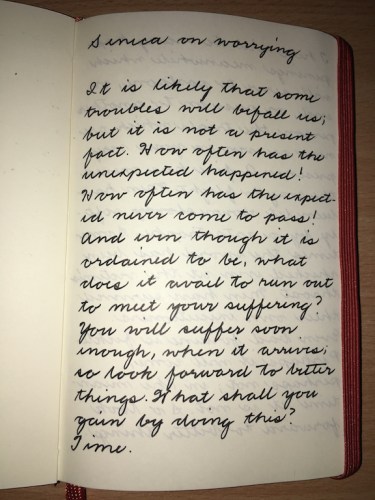 Seneca on worrying
It is likely that some
troubles will befall us;
but it is not a present
fact. How often has the
unexpected happened!
How often has the expect-
ed never come to pass!
And even though it is
ordained to be, what
does it avail to run out
to meet your suffering?
You will suffer soon
enough, when it arrives;
so look forward to better
things. What shall you
gain by doing this?
Time.